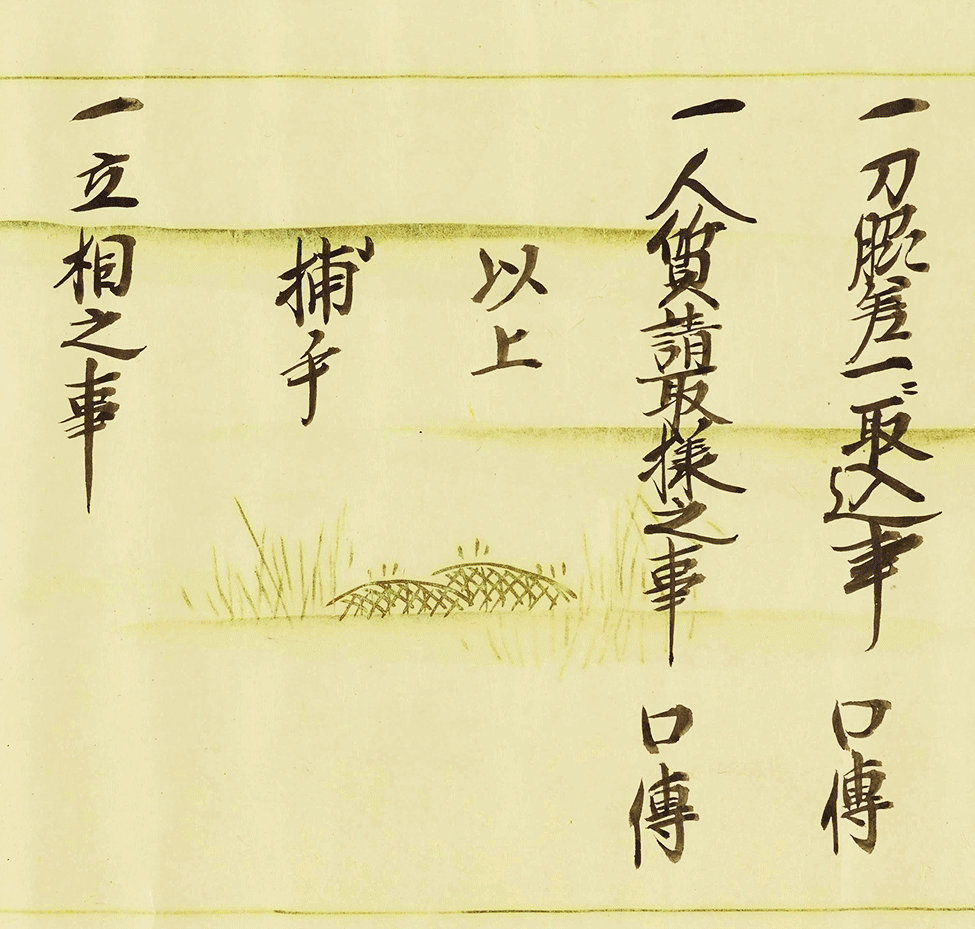 一刀脇差ニ而取込事　口傳
一人質請取様之事　口傳
以上
捕手
一立相之事